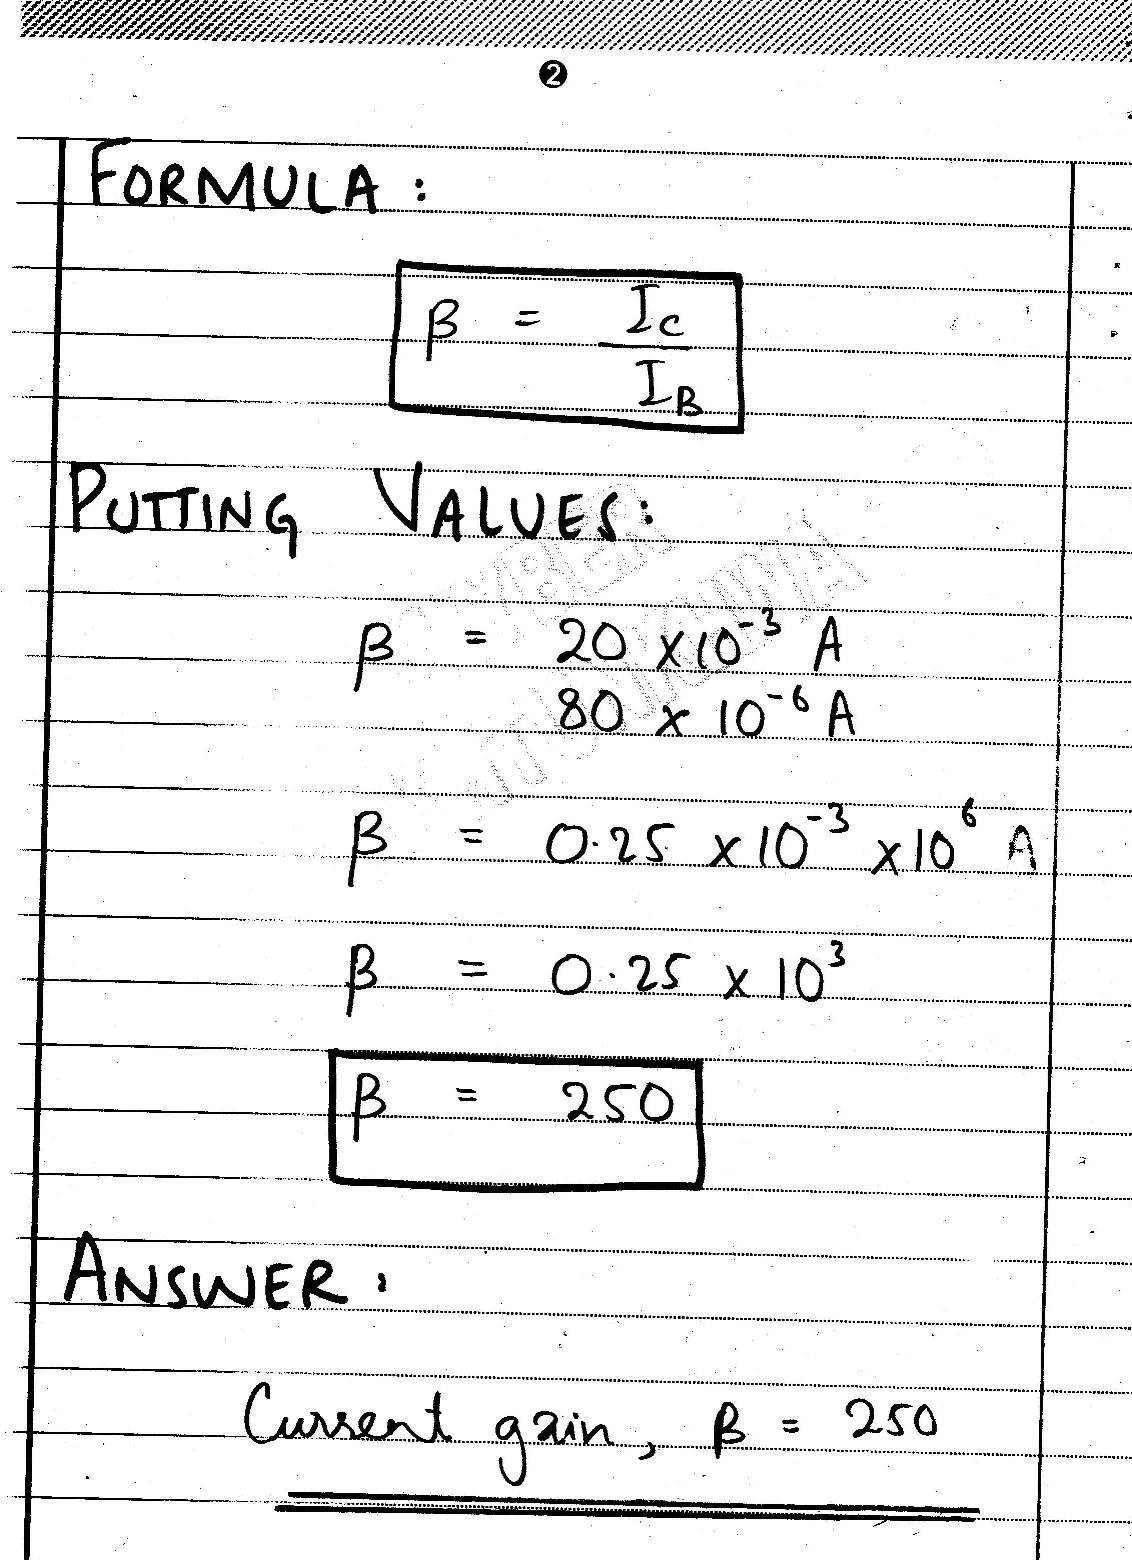 2
FORMULA :
β = I_C
I_B
PUTTING VALUES:
β = 20 × 10⁻³ A
80 × 10⁻⁶ A
β = 0.25 × 10⁻³ × 10⁶ A
β = 0.25 × 10³
β = 250
ANSWER :
Current gain, β = 250